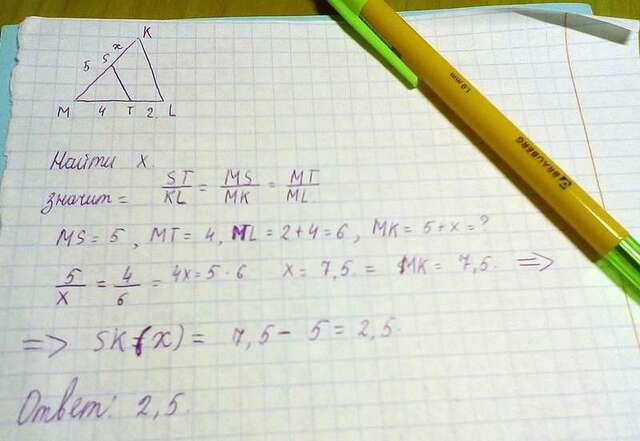 K
x
5 S
M 4 T 2 L
Найти x.
значит = ST/KL = MS/MK = MT/ML
MS = 5, MT = 4, ML = 2+4 = 6, MK = 5+x = ?
5/x = 4/6 = 4x = 5 · 6 x = 7,5. = MK = 7,5. =>
=> SK(x) = 7,5 - 5 = 2,5.
Ответ: 2,5.
1.0 mm
BRAUBERG